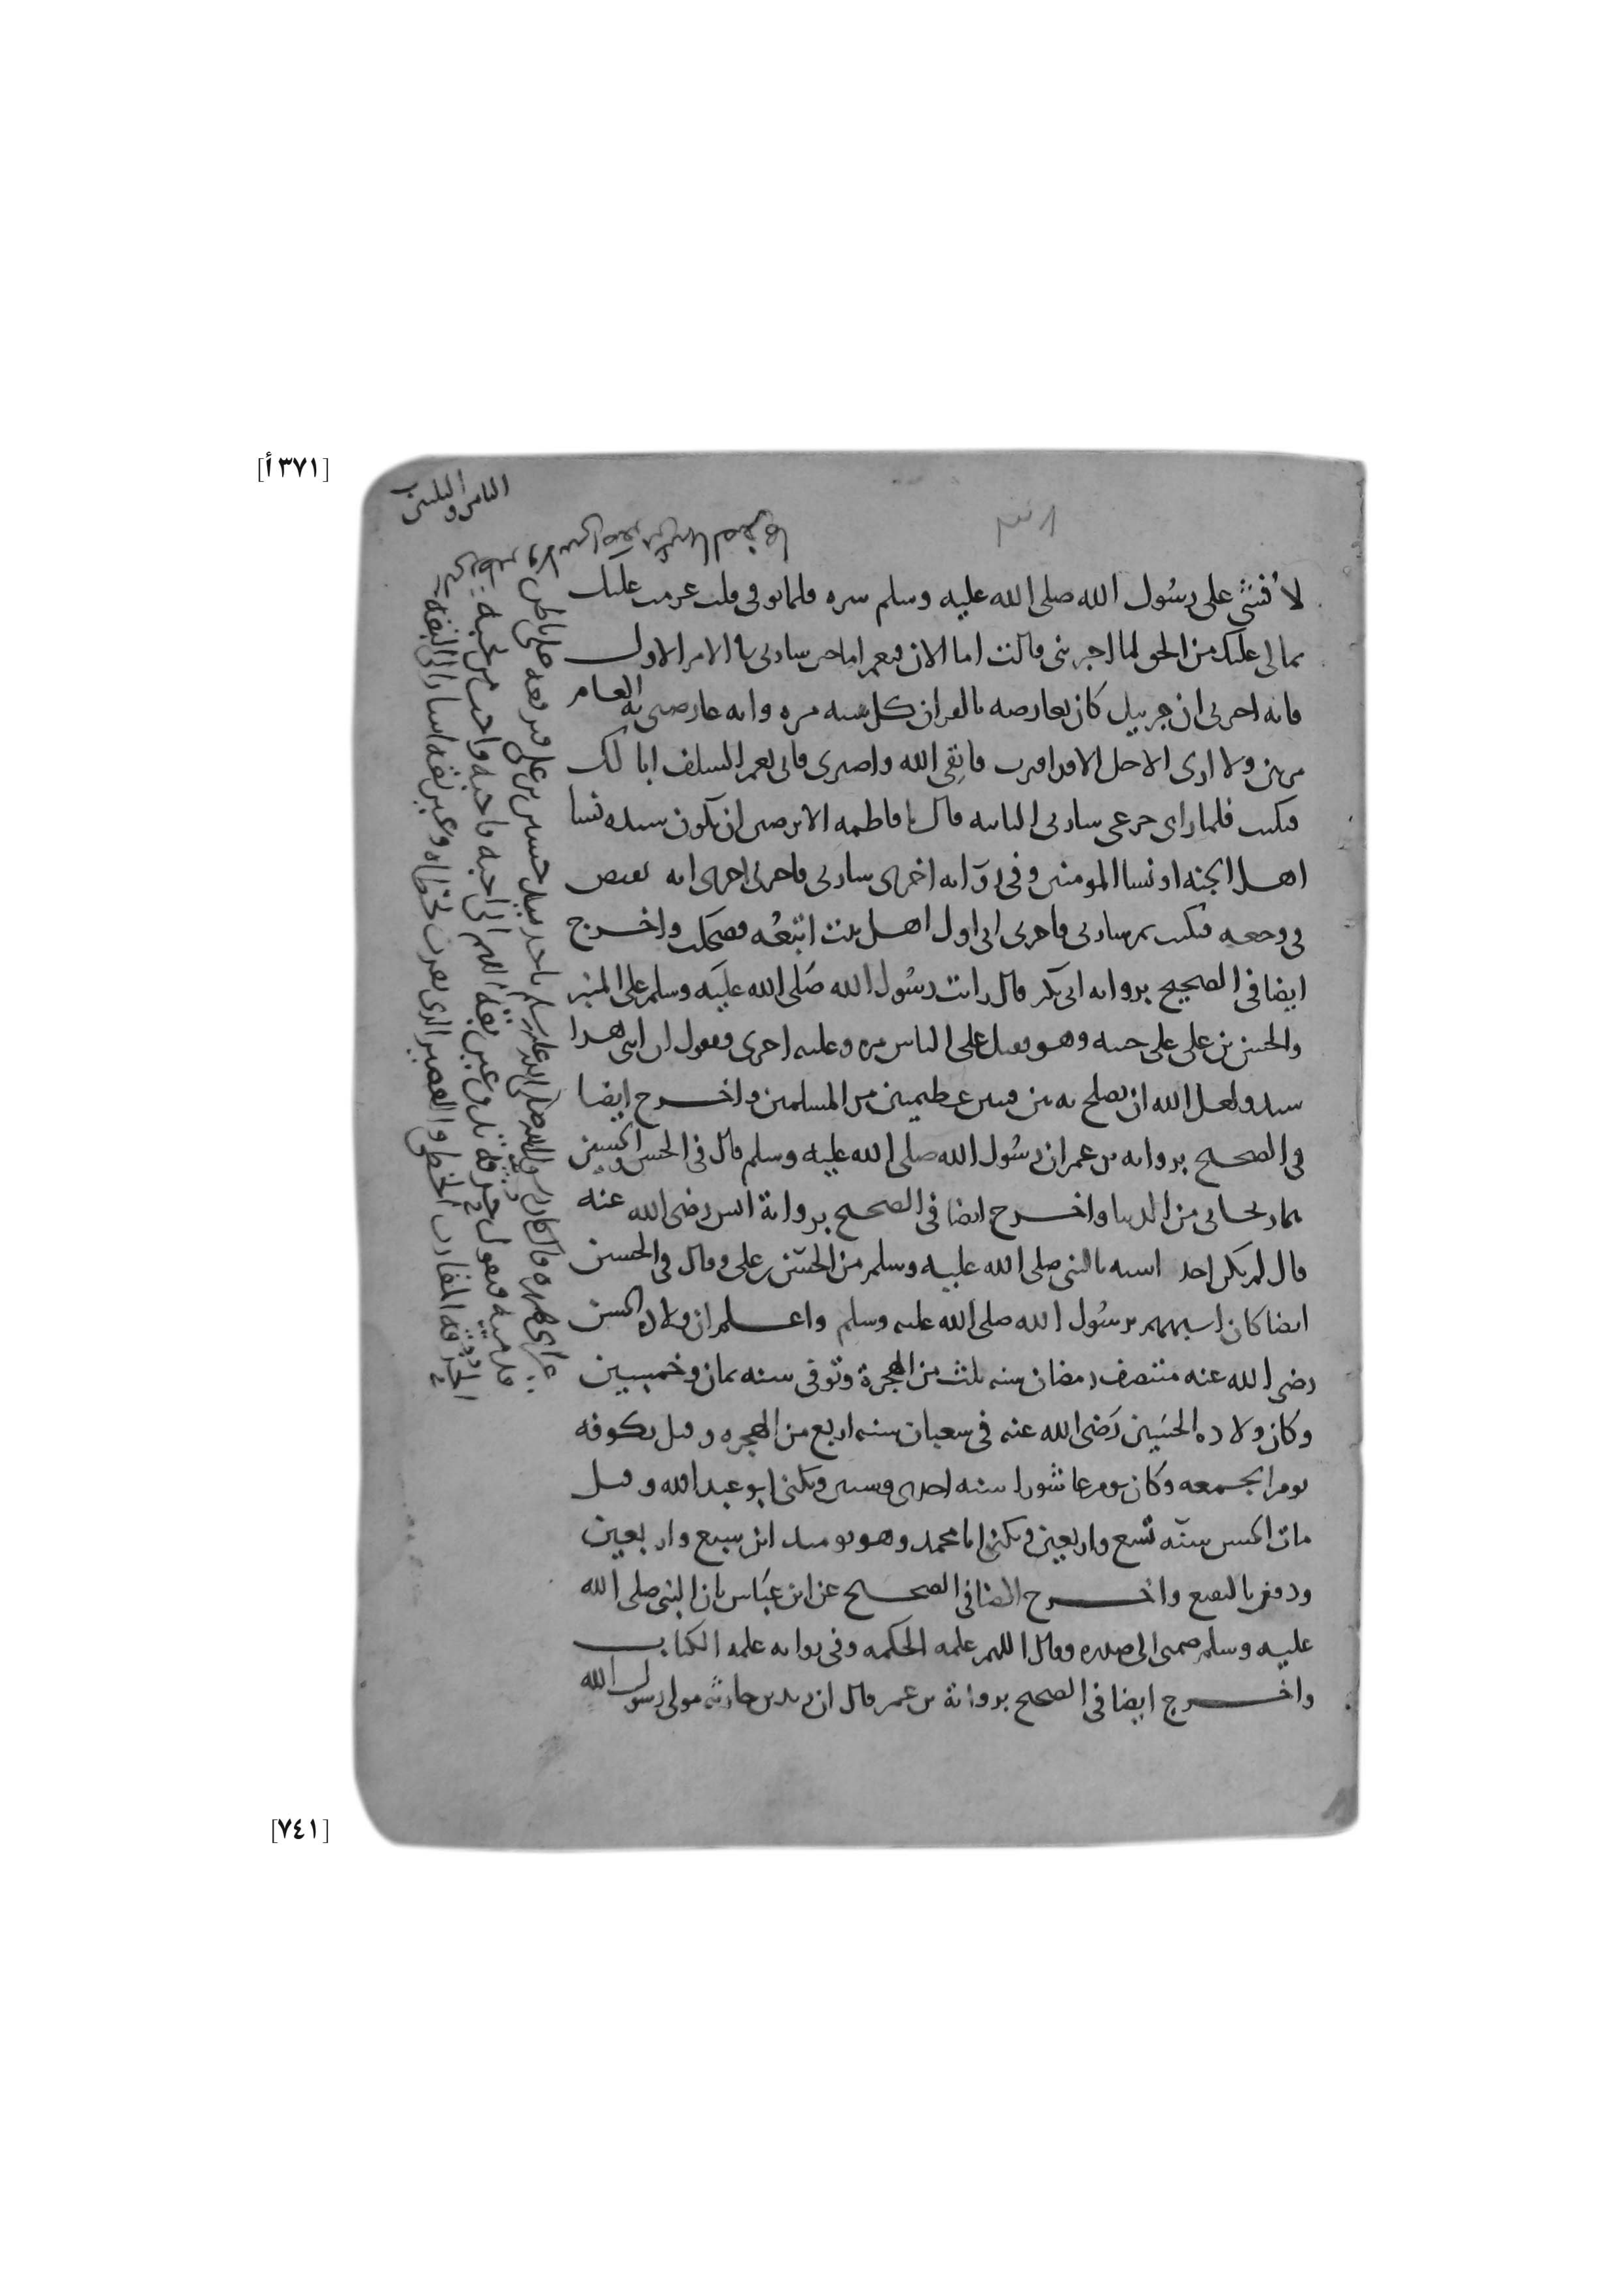 [٣٧١ أ]
الثامن والثلثون
لأفشي على رسول الله صلى الله عليه وسلم سره فلما توفي قلت عزمت عليك
بما لي عليك من الحق لما اخبرتني قالت اما الان فنعم اما حين سارني في الامر الاول
فانه اخبرني ان جبريل كان يعارضه بالقران كل سنه مره وانه عارضني به العام
مرتين ولا ارى الاجل الا قد اقترب فاتقي الله واصبري فاني نعم السلف انا لك
فبكيت فلما راى جزعي سارني الثانيه قال يا فاطمه الا ترضين ان تكون سيده نسا
اهل الجنه او نسا المومنين وفي روايه اخرى سارني فاخبرني انه يقبض
في وجعه فبكيت ثم سارني فاخبرني اني اول اهل بيته اتبعه فضحكت واخرج
ايضا في الصحيح بروايه ابي بكر قال رايت رسول الله صلى الله عليه وسلم على المنبر
والحسن بن علي على جنبه وهو يقبل على الناس مره وعليه اخرى ويقول ان ابني هذا
سيد ولعل الله ان يصلح به بين فيتين عظيمتين من المسلمين واخرج ايضا
في الصحيح بروايه بن عمر ان رسول الله صلى الله عليه وسلم قال في الحسن والحسين
هما ريحاني من الدنيا واخرج ايضا في الصحيح برواية انس رضي الله عنه
قال لم يكن احد اشبه بالنبي صلى الله عليه وسلم من الحسن بن علي وقال في الحسين
ايضا كان اشبههم برسول الله صلى الله عليه وسلم واعلم ان ولاده الحسن
رضي الله عنه منتصف رمضان سنه ثلث من الهجرة وتوفي سنه ثمان وخمسين
وكان ولاده الحسين رضي الله عنه في شعبان سنه اربع من الهجره وقتل بكوفه
يوم الجمعه وكان يوم عاشورا سنه احدى وستين ويكنى ابو عبد الله وقيل
مات الحسن سنة تسع واربعين ويكنى ابا محمد وهو يوميد ابن سبع واربعين
ودفن بالبقيع واخرج ايضا في الصحيح عن ابن عباس بان النبي صلى الله
عليه وسلم ضمني الى صدره وقال اللهم علمه الحكمه وفي روايه علمه الكتاب
واخرج ايضا في الصحيح برواية بن عمر قال ان زيد بن حارثه مولى رسول الله
[٧٤١]